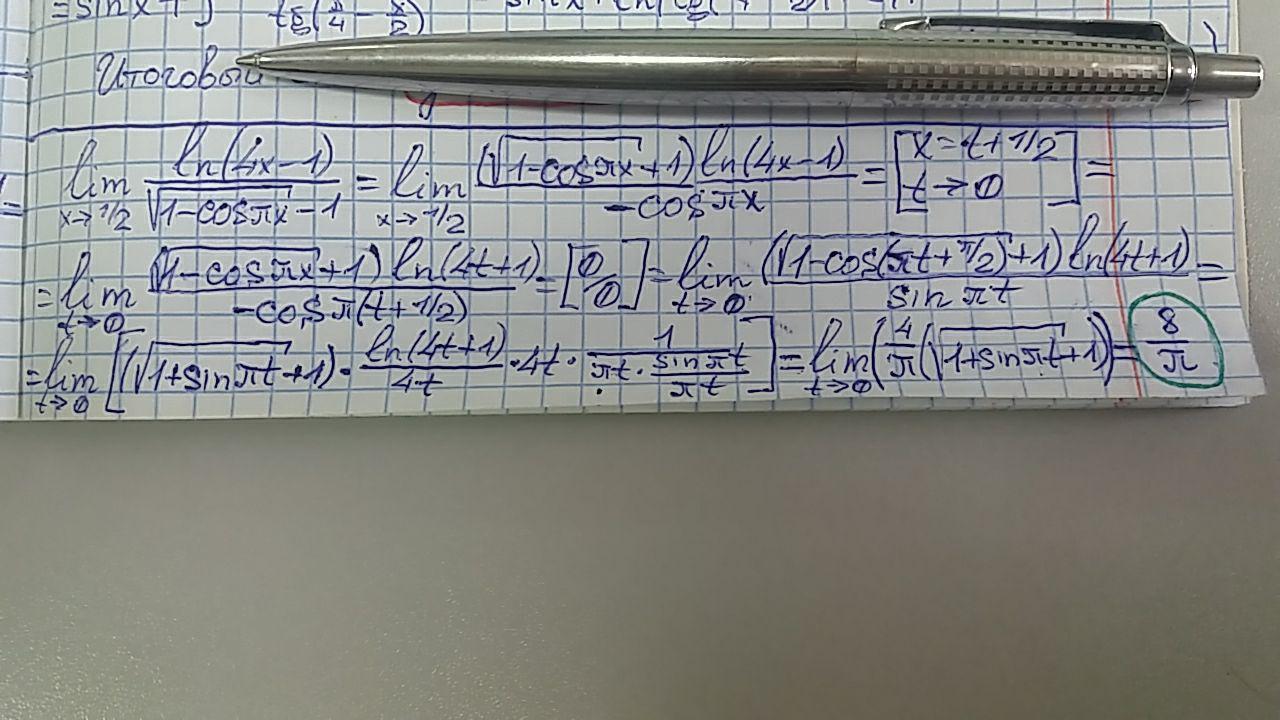 = sin x +
tg(π/4 - x/2)
Итоговый
lim x→1/2 ln(4x-1)/(√(1-cosπx) -1) = lim x→1/2 (√(1-cosπx)+1) ln(4x-1)/(-cosπx) = [x = t+1/2 t→0] =
= lim t→0 (√(1-cosπx)+1) ln(4t+1)/(-cosπ(t+1/2)) = [0/0] = lim t→0 (√(1-cos(πt+π/2))+1) ln(4t+1)/(sinπt) =
= lim t→0 [(√(1+sinπt)+1)·ln(4t+1)/(4t)·4t·1/(πt·sinπt/(πt))] = lim t→0 (4/π(√(1+sinπt)+1)) = 8/π